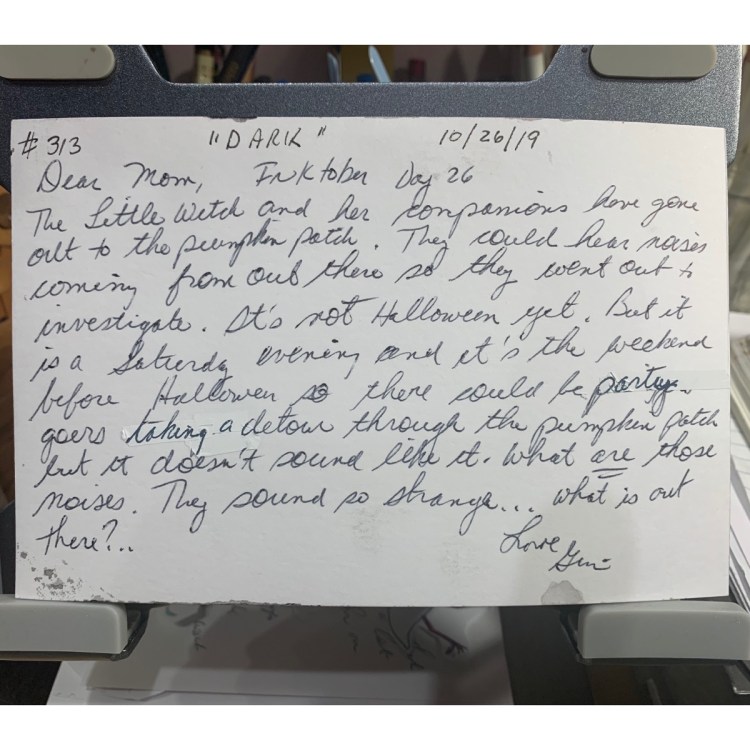 # 313 "DARK" 10/26/19
Dear Mom, Inktober Day 26
The Little Witch and her companions have gone
out to the pumpkin patch. They could hear noises
coming from out there so they went out to
investigate. It's not Halloween yet. But it
is a Saturday evening and it's the weekend
before Halloween so there could be party-
goers taking a detour through the pumpkin patch
but it doesn't sound like it. What are those
noises. They sound so strange... what is out
there?..
Love